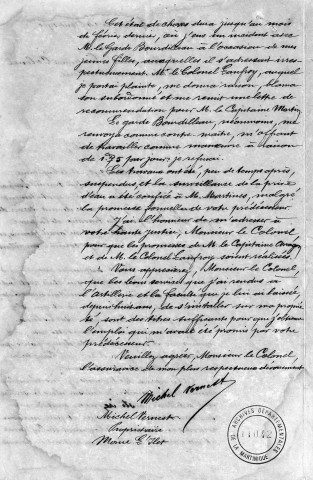 Cet état de choses dura jusqu'au mois
de février dernier, où j'eus un incident avec
M. le Garde Bourdillau à l'occasion de mes
jeunes filles, auxquelles il s'adressait irres-
pectueusement. M. le Colonel Laufroy, auquel
je portai plainte, me donna raison, blama
son subordonné et me remit une lettre de
recommandation pour M. le Capitaine Martin.
Le garde Bourdillau, néanmoins, me
renvoya comme contre maître, m'offrant
de travailler comme manœuvre à raison
de 1.95 par jour; je refusai.
Les travaux ont été, peu de temps après,
suspendus, et la surveillance de la prise
d'eau a été confiée à M. Martines, malgré
la promesse formelle de votre prédécesseur.
J'ai l'honneur de m'adresser à
votre haute justice, Monsieur le Colonel,
pour que les promesses de M. le Capitaine
et de M. le Colonel Laufroy soient réalisées.
Vous apprécierez, Monsieur le Colonel,
que les bons services que j'ai rendus à
l'Artillerie et la faculté que je lui ai laissée,
depuis huit ans, de s'installer sur ma proprié-
té, sont des titres suffisants pour que j'obtienne
l'emploi qui m'avait été promis par votre
prédécesseur.
Veuillez agréer, Monsieur le Colonel,
l'assurance de mon plus respectueux dévouement.
Michel Vernest
Michel Vernest
Propriétaire
Morne L'Ilet
ARCHIVES DÉPARTEMENTALES
DE LA MARTINIQUE